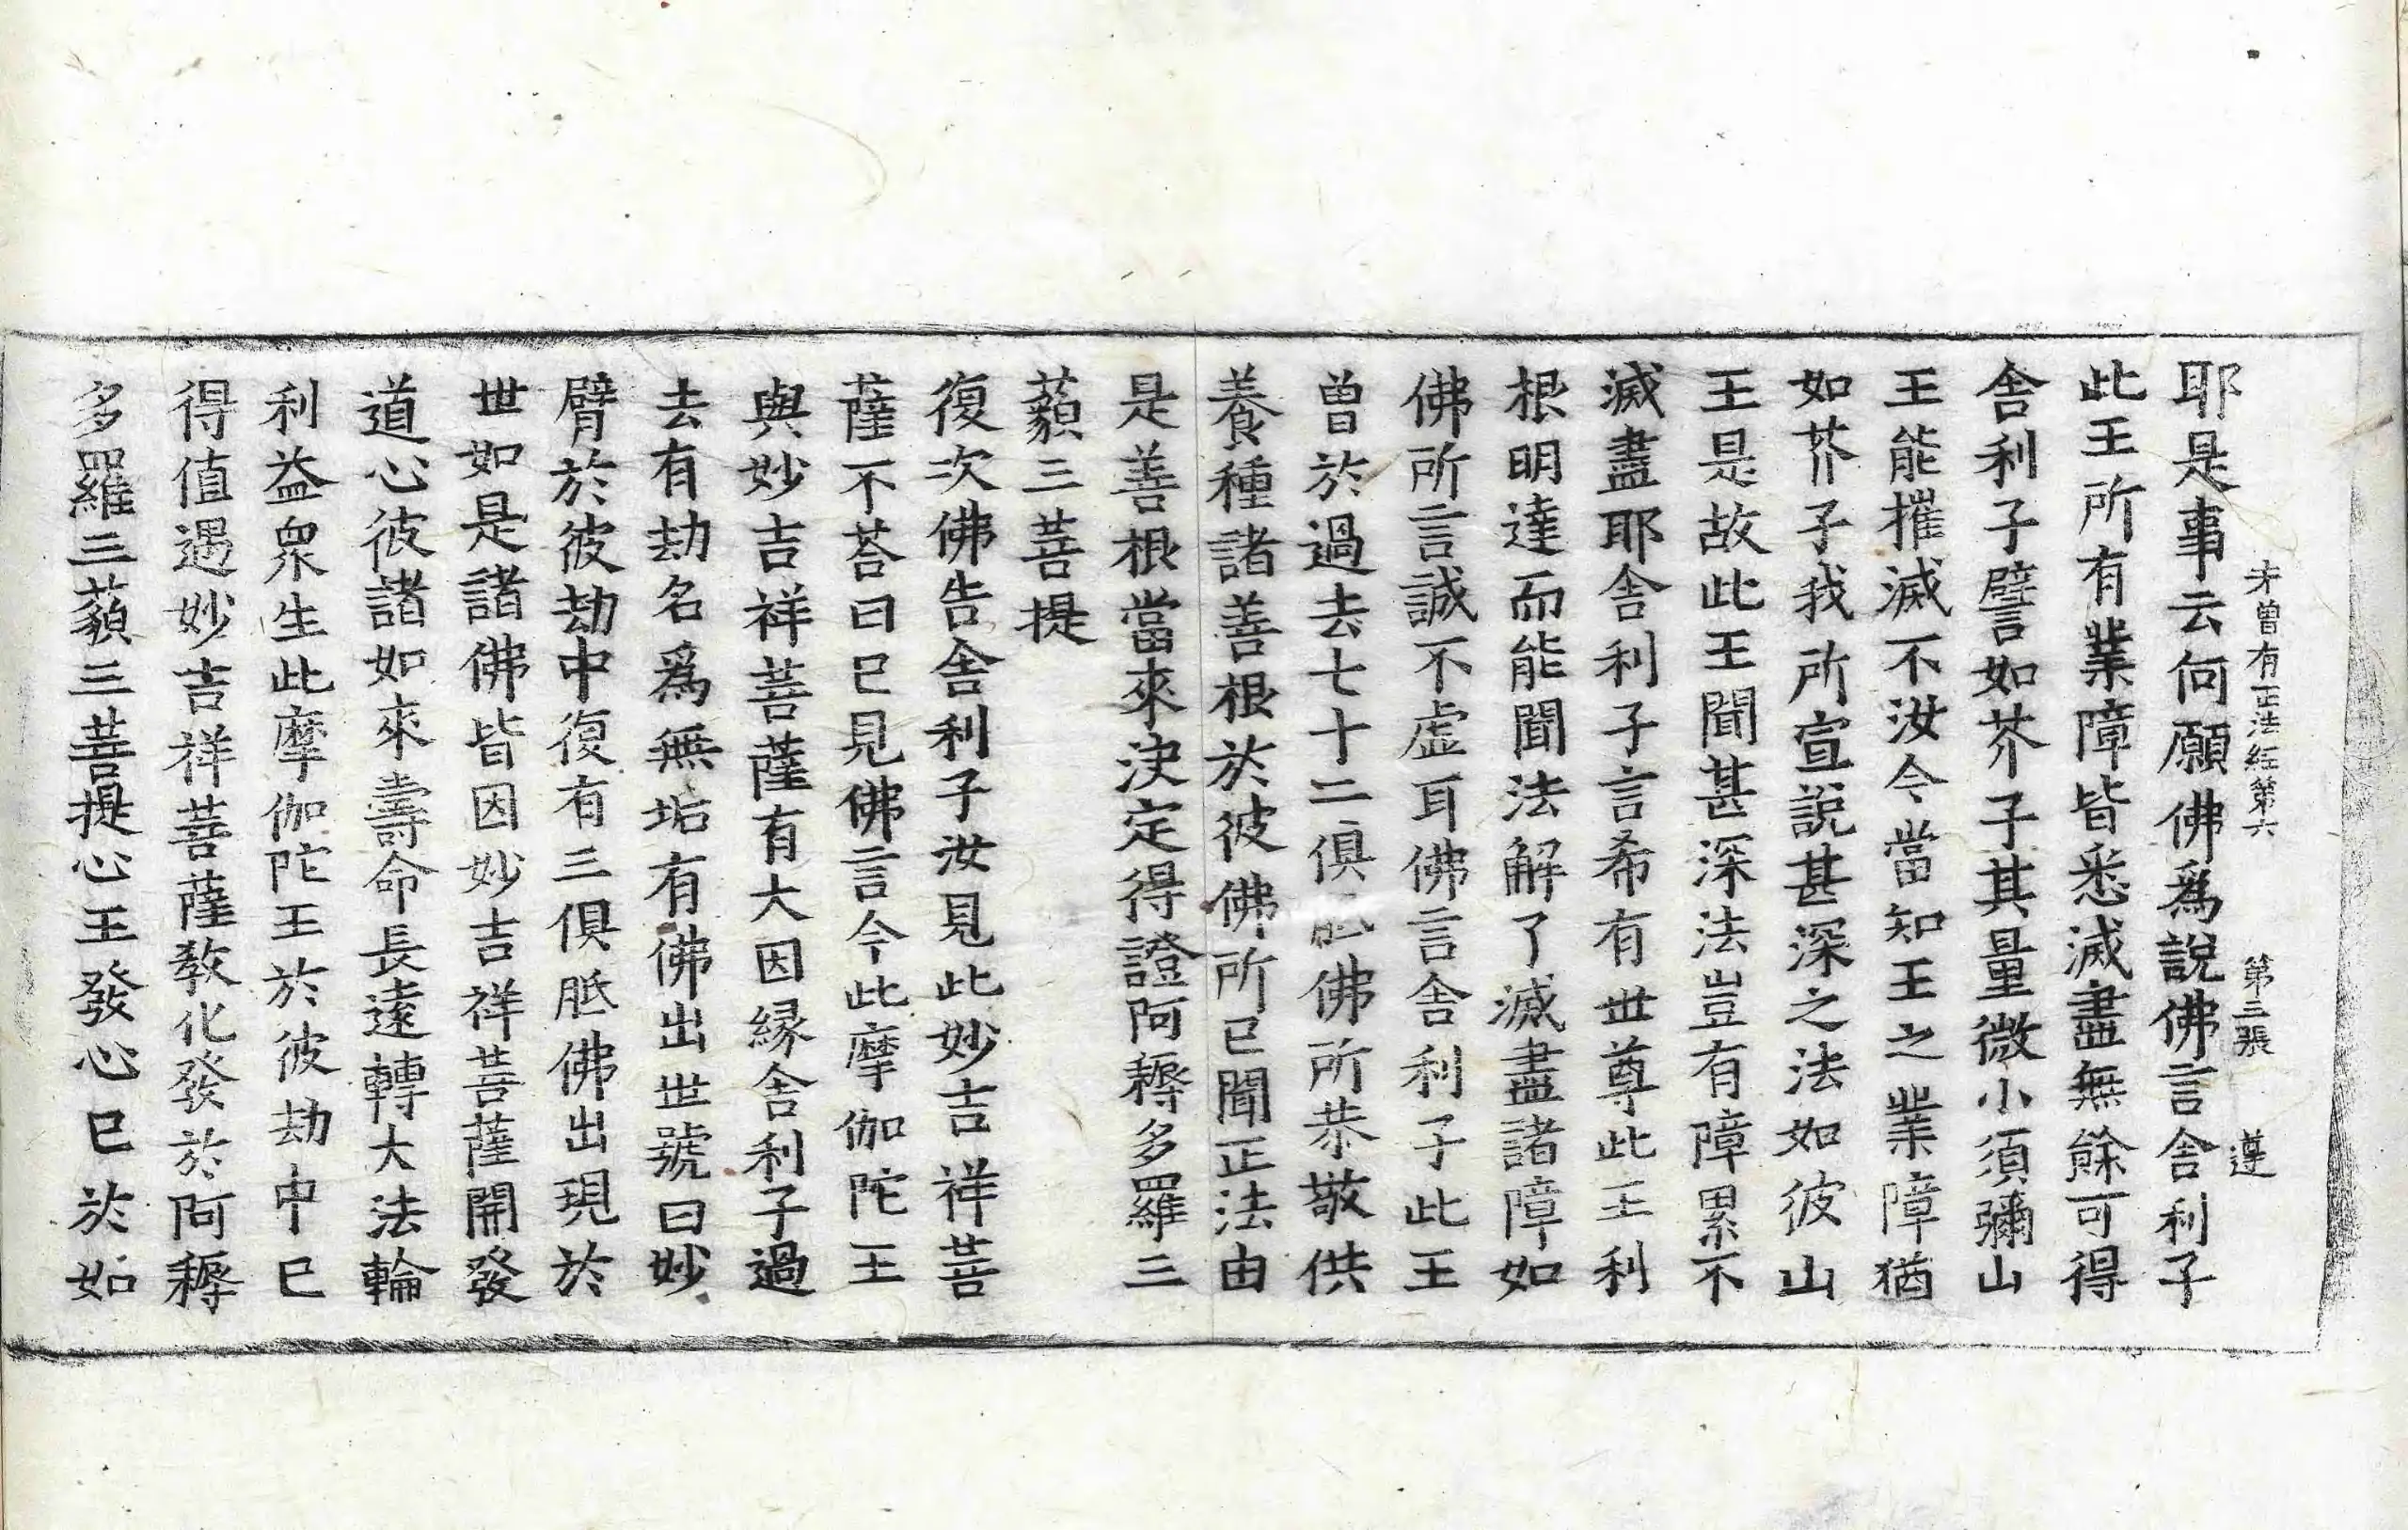 未曾有正法経第六 第三張 遵
耶是事云何願佛爲說佛言舍利子
此王所有業障皆悉滅盡無餘可得
舍利子譬如芥子其量微小須彌山
王能摧滅不汝今當知王之業障猶
如芥子我所宣說甚深之法如彼山
王是故此王聞甚深法豈有障累不
滅盡耶舍利子言希有世尊此王利
根明達而能聞法解了滅盡諸障如
佛所言誠不虛耳佛言舍利子此王
曾於過去七十二俱胝佛所恭敬供
養種諸善根於彼佛所已聞正法由
是善根當來決定得證阿耨多羅三
藐三菩提
復次佛告舍利子汝見此妙吉祥菩
薩不荅曰已見佛言今此摩伽陀王
與妙吉祥菩薩有大因緣舍利子過
去有劫名爲無垢有佛出世號曰妙
臂於彼劫中復有三俱胝佛出現於
世如是諸佛皆因妙吉祥菩薩開發
道心彼諸如來壽命長遠轉大法輪
利益衆生此摩伽陀王於彼劫中已
得值遇妙吉祥菩薩教化發於阿耨
多羅三藐三菩提心王發心已於如